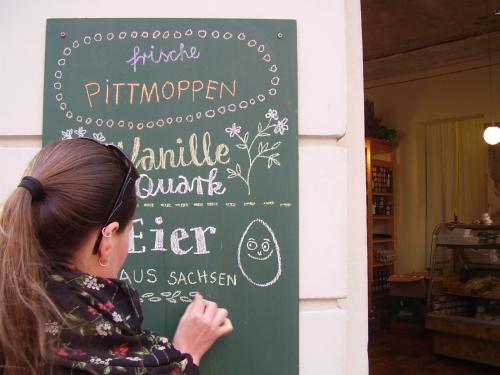 frische
PITTMOPPEN
Vanille
Quark
Eier
AUS SACHSEN